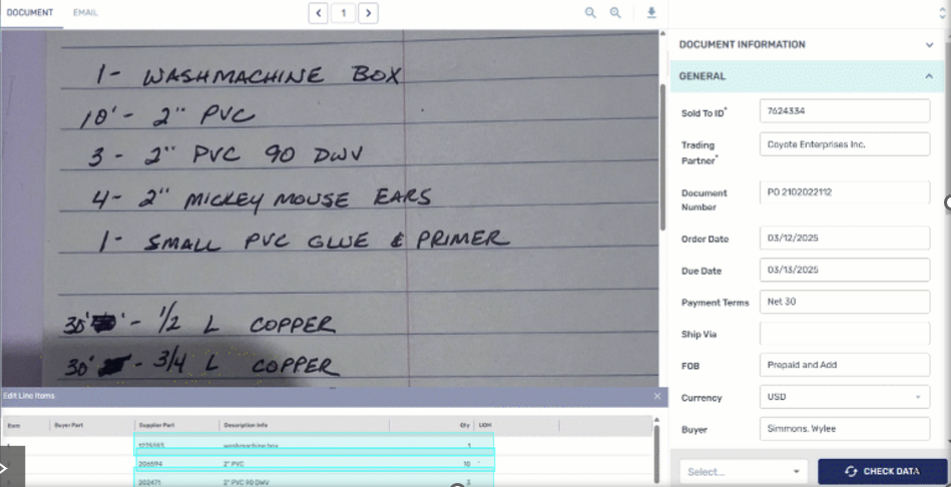 DOCUMENT EMAIL
1
1- WASHMACHINE BOX
10' - 2" PVC
3 - 2" PVC 90 DWV
4- 2" MICKEY MOUSE EARS
1- SMALL PVC GLUE & PRIMER
30' - 1/2 L COPPER
30' - 3/4 L COPPER
Edit Line Items
Item Buyer Part Supplier Part Description Info Qty UOM
washmachine box 1
206594 2" PVC 10
202471 2" PVC 90 DWV 3
DOCUMENT INFORMATION
GENERAL
Sold To ID* 7624334
Trading Partner* Coyote Enterprises Inc.
Document Number PO 2102022112
Order Date 03/12/2025
Due Date 03/13/2025
Payment Terms Net 30
Ship Via
FOB Prepaid and Add
Currency USD
Buyer Simmons, Wylee
Select... CHECK DATA